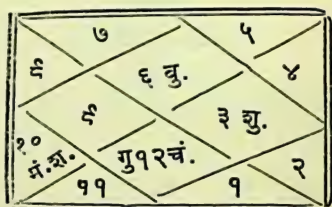 ७ ५
६ बु. ४
३ शु.
१०
मं.श. गु१२चं. २
११ १